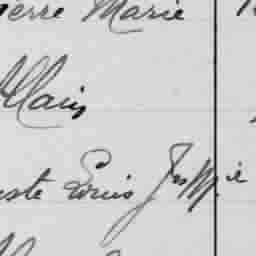 ierre Marie
Allain
uste Louis Jos M.ie